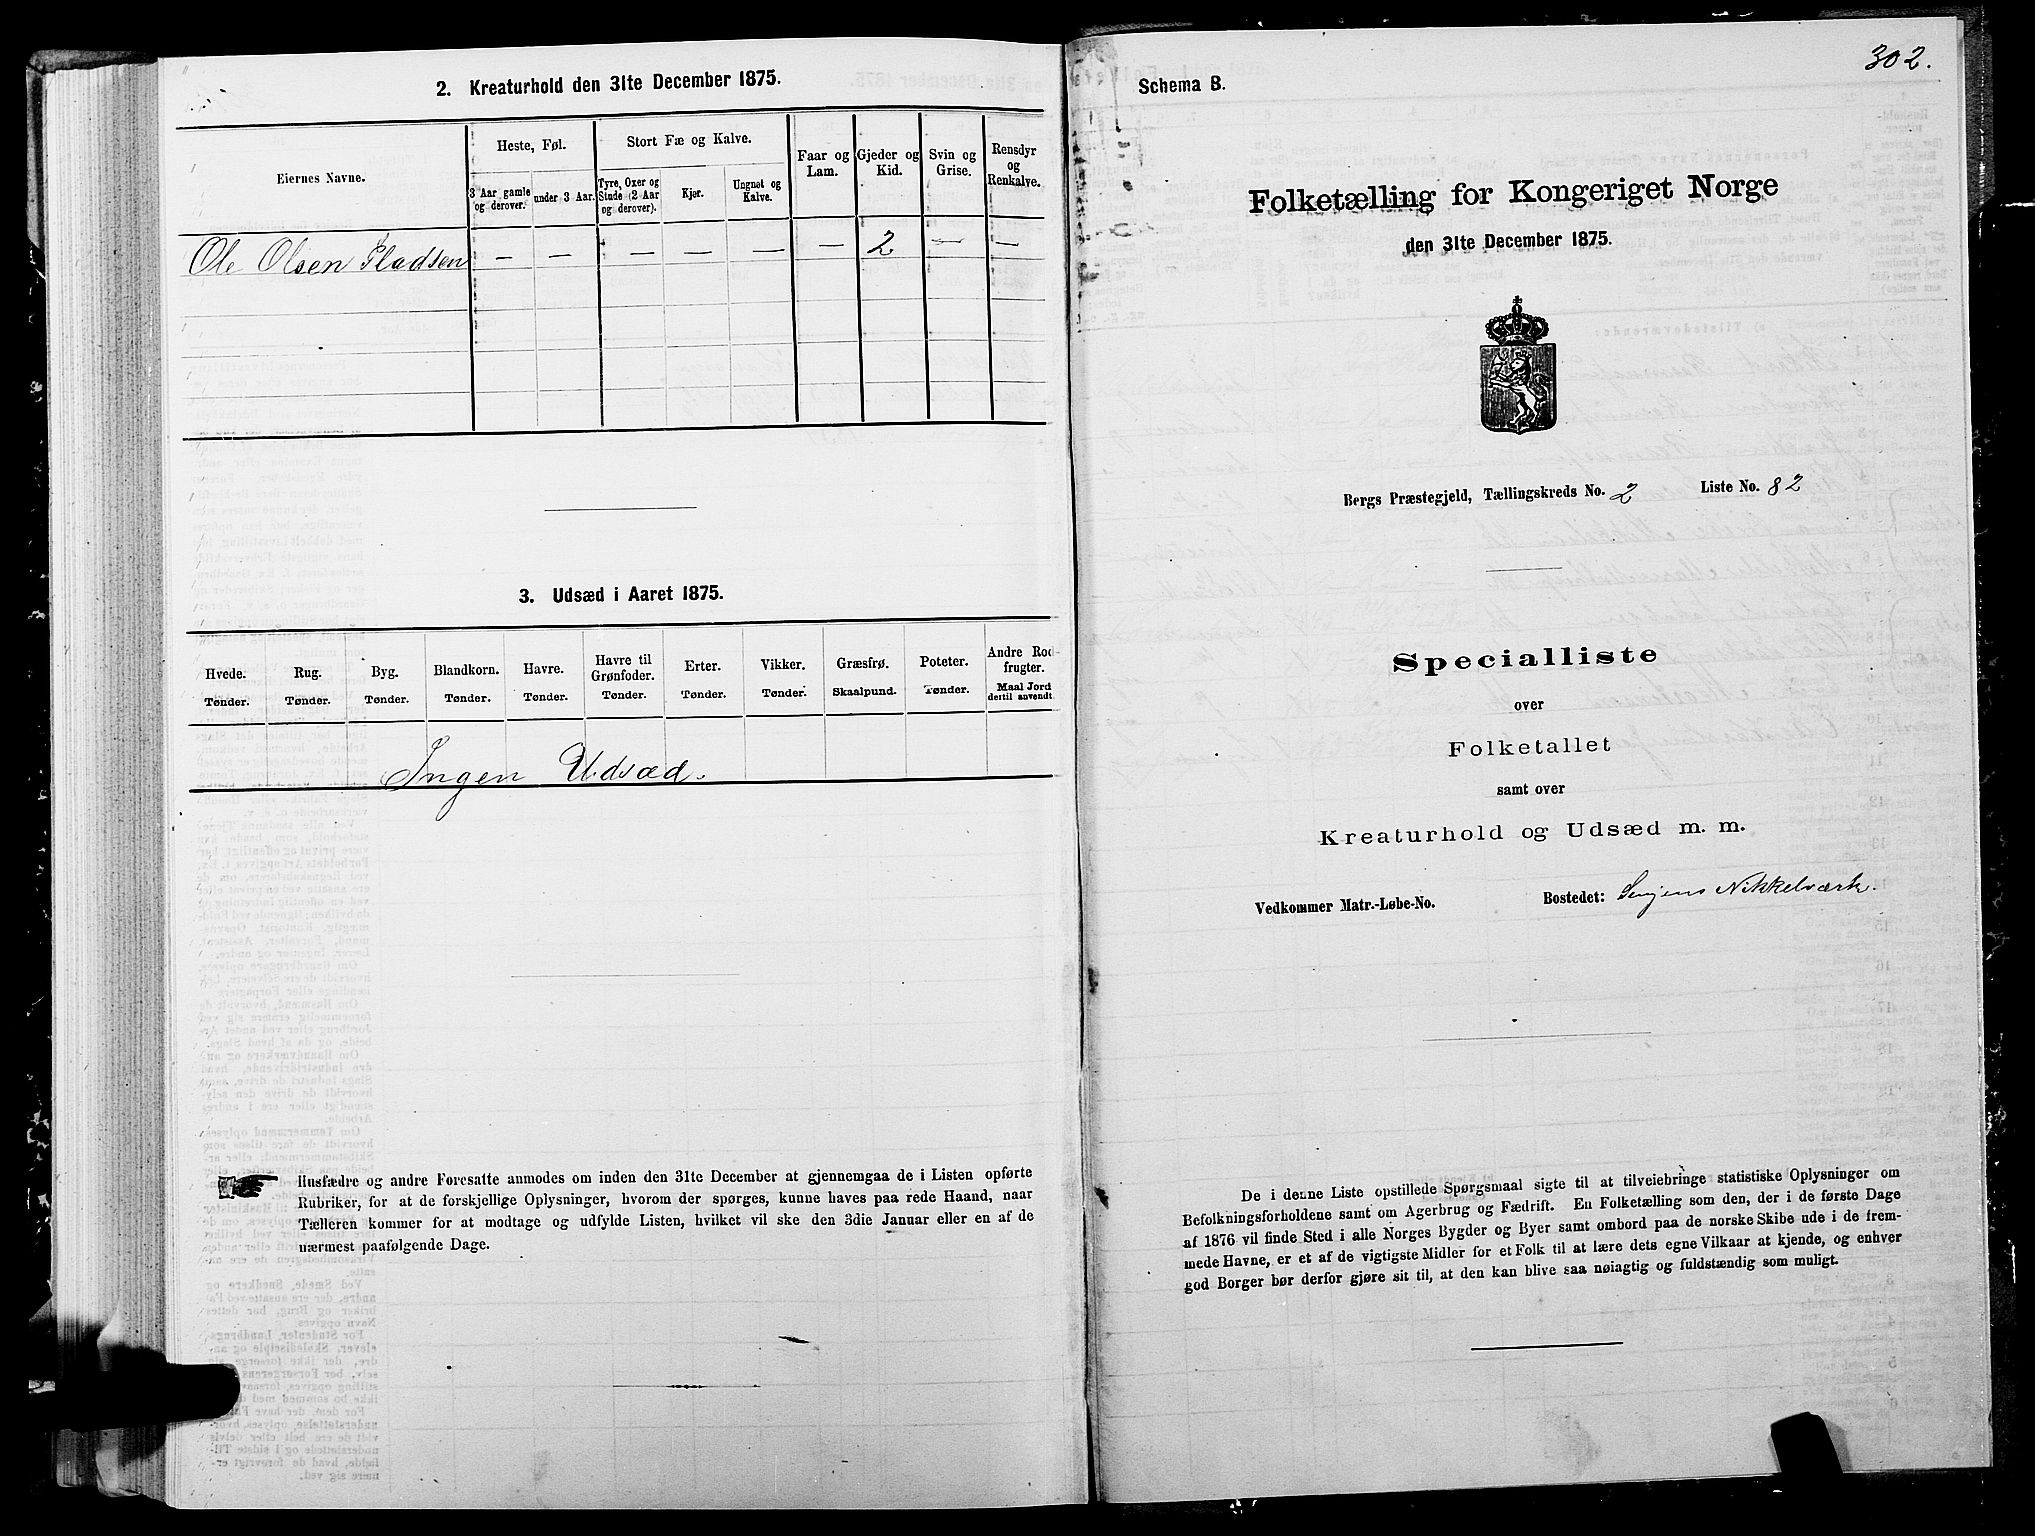 2. Kreaturhold den 31te December 1875.
Eiernes Navne.
Heste, Føl.
Stort Fæ og Kalve.
Faar og Lam.
Gjeder og Kid.
Svin og Grise.
Rensdyr og Renkalve.
3 Aar gamle og derover.
under 3 Aar.
Tyre, Oxer og Stude (2 Aar og derover).
Kjør.
Ungnøt og Kalve.
Ole Olsen Pladsen — — — — — — 2 — —
3. Udsæd i Aaret 1875.
Hvede. Tønder.
Rug. Tønder.
Byg. Tønder.
Blandkorn. Tønder.
Havre. Tønder.
Havre til Grønfoder. Tønder.
Erter. Tønder.
Vikker. Tønder.
Græsfrø. Skaalpund.
Poteter. Tønder.
Andre Rodfrugter. Maal Jord dertil anvendt.
Ingen Udsæd.
Husfædre og andre Foresatte anmodes om inden den 31te December at gjennemgaa de i Listen opførte
Rubriker, for at de forskjellige Oplysninger, hvorom der spørges, kunne haves paa rede Haand, naar
Tælleren kommer for at modtage og udfylde Listen, hvilket vil ske den 3die Januar eller en af de
nærmest paafølgende Dage.
302.
Schema B.
Folketælling for Kongeriget Norge
den 31te December 1875.
Bergs Præstegjeld, Tællingskreds No. 2 Liste No. 82
Specialliste
over
Folketallet
samt over
Kreaturhold og Udsæd m. m.
Vedkommer Matr.-Løbe-No. Bostedet: Senjens Nikkelværk.
De i denne Liste opstillede Spørgsmaal sigte til at tilveiebringe statistiske Oplysninger om
Befolkningsforholdene samt om Agerbrug og Fædrift. En Folketælling som den, der i de første Dage
af 1876 vil finde Sted i alle Norges Bygder og Byer samt ombord paa de norske Skibe ude i de frem-
mede Havne, er et af de vigtigste Midler for et Folk til at lære dets egne Vilkaar at kjende, og enhver
god Borger bør derfor gjøre sit til, at den kan blive saa nøiagtig og fuldstændig som muligt.